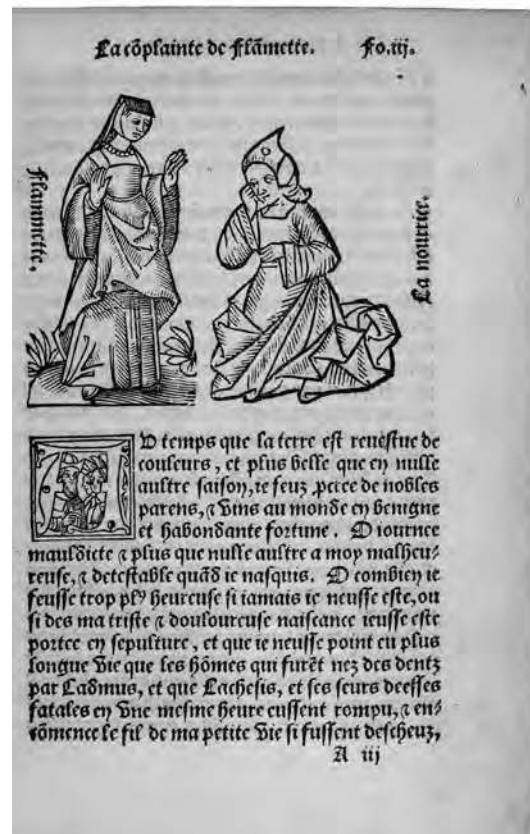 La cõplainte de Flãmette. Fo.iij.
Flammette.
La nourrice.
D temps que la terre est reuestue de
couleurs, et plus belle que en nulle
aultre saison, ie feuz ꝓcree de nobles
parens, ⁊ vins au monde en benigne
et habondante fortune. O iournee
mauldicte ⁊ plus que nulle aultre a moy malheu⸗
reuse, ⁊ detestable quãd ie nasquis. O combien ie
feusse trop plꝰ heureuse si iamais ie neusse este, ou
si des ma triste ⁊ douloureuse naissance ieusse este
portee en sepulture, et que ie neusse point eu plus
longue vie que les hõmes qui furẽt nez des dentz
par Cadmus, et que Lachesis, et ses seurs deesses
fatales en vne mesme heure eussent rompu, ⁊ en⸗
cõmence le fil de ma petite vie si fussent descheuz,
A iij